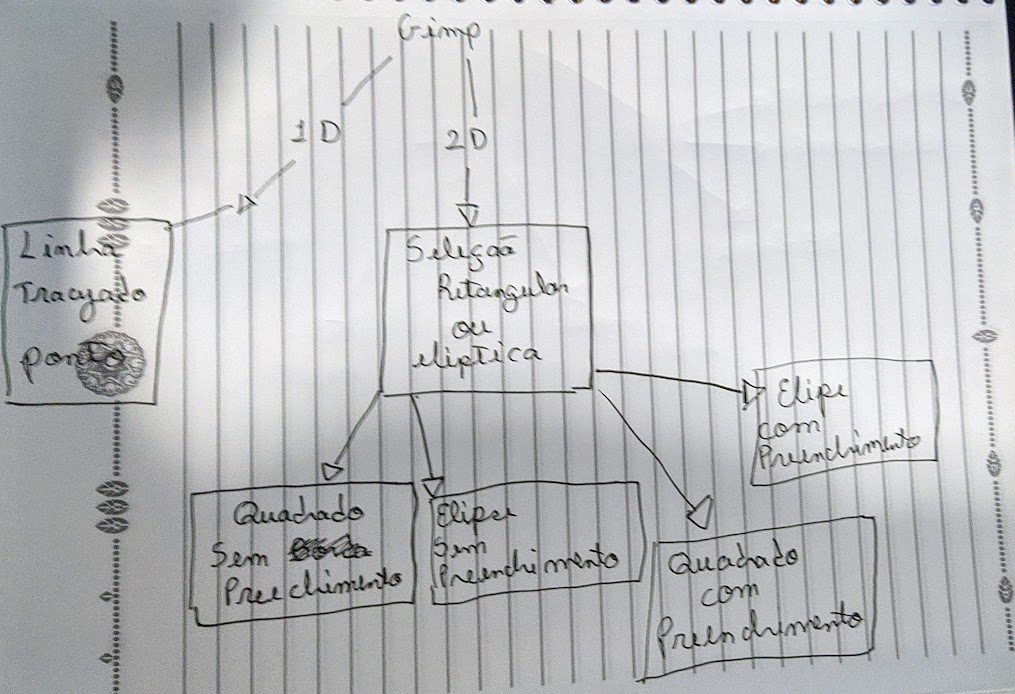 Gimp
1D
2D
Linha
Tracyado
ponto
Seleção
Retangular
ou
eliptica
Elipe
com
Preenchimento
Quadrado
Sem
Preechimento
Elipse
Sem
Preenchimento
Quadrado
com
Preenchimento